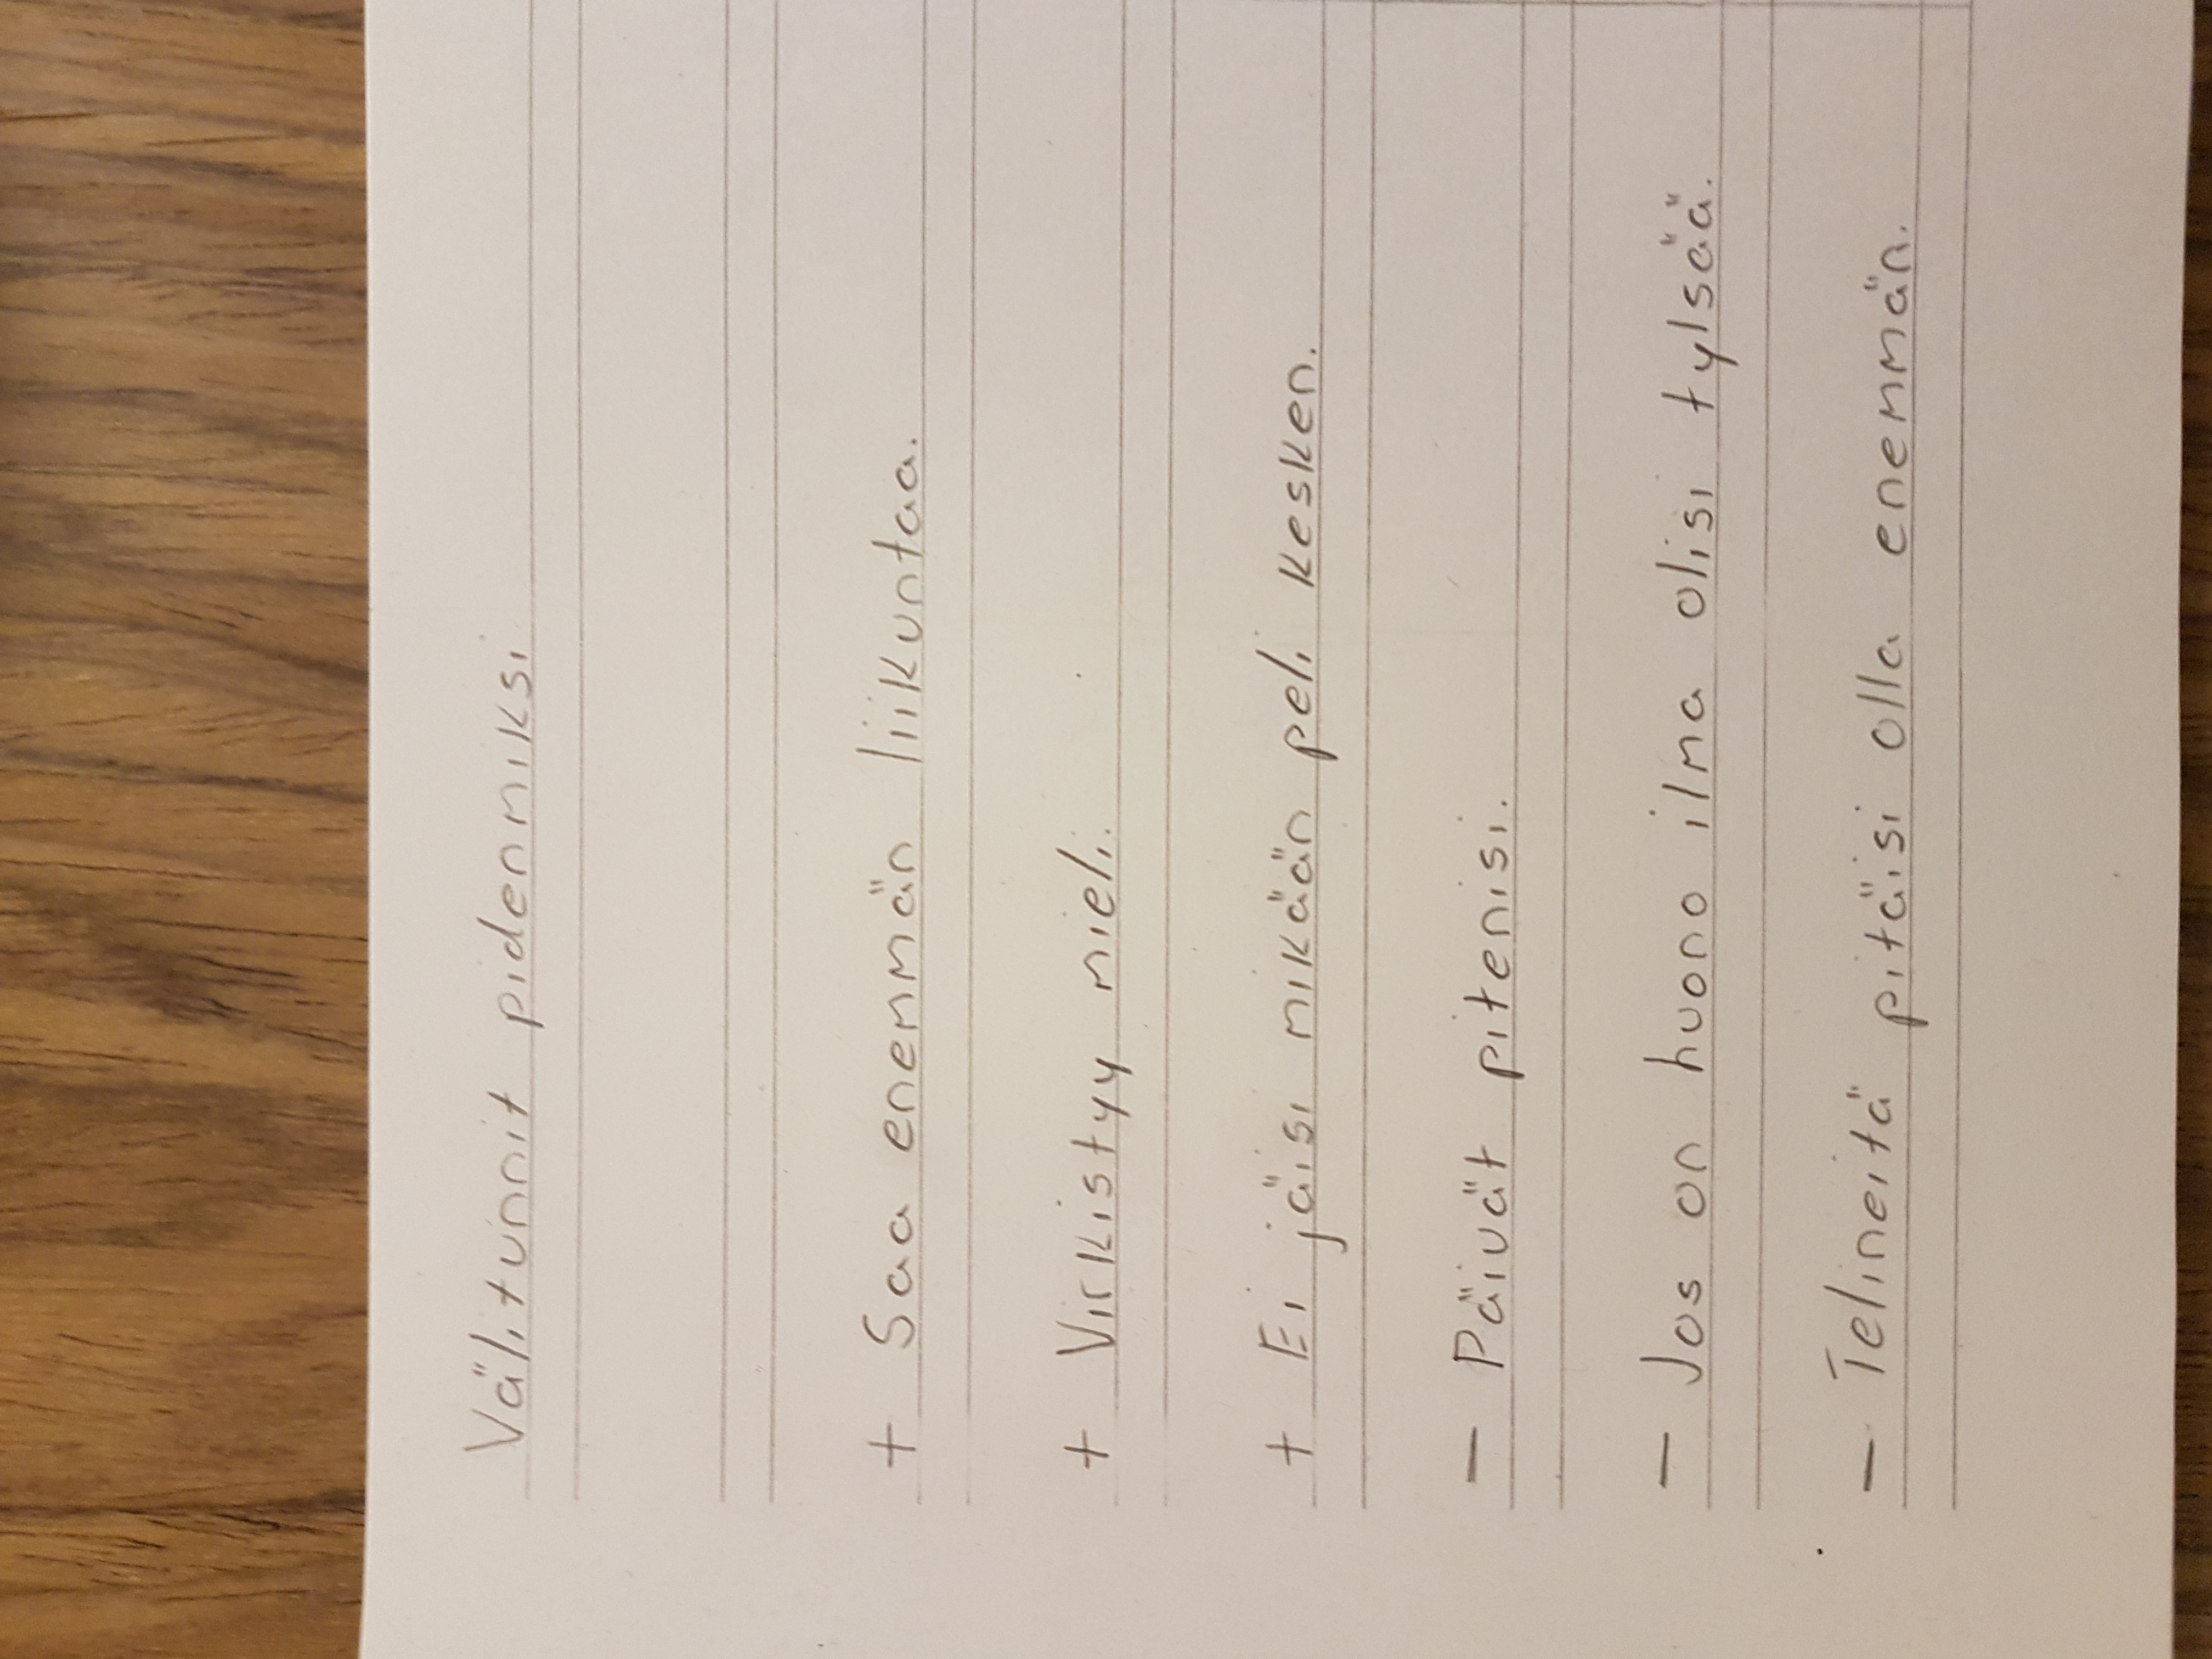 Välitunnit pidemmiksi
+ Saa enemmän liikuntaa.
+ Virkistyy mieli.
+ Ei jäisi mikään peli kesken.
- Päivät pitenisi.
- Jos on huono ilma olisi tylsää.
- Telineitä pitäisi olla enemmän.